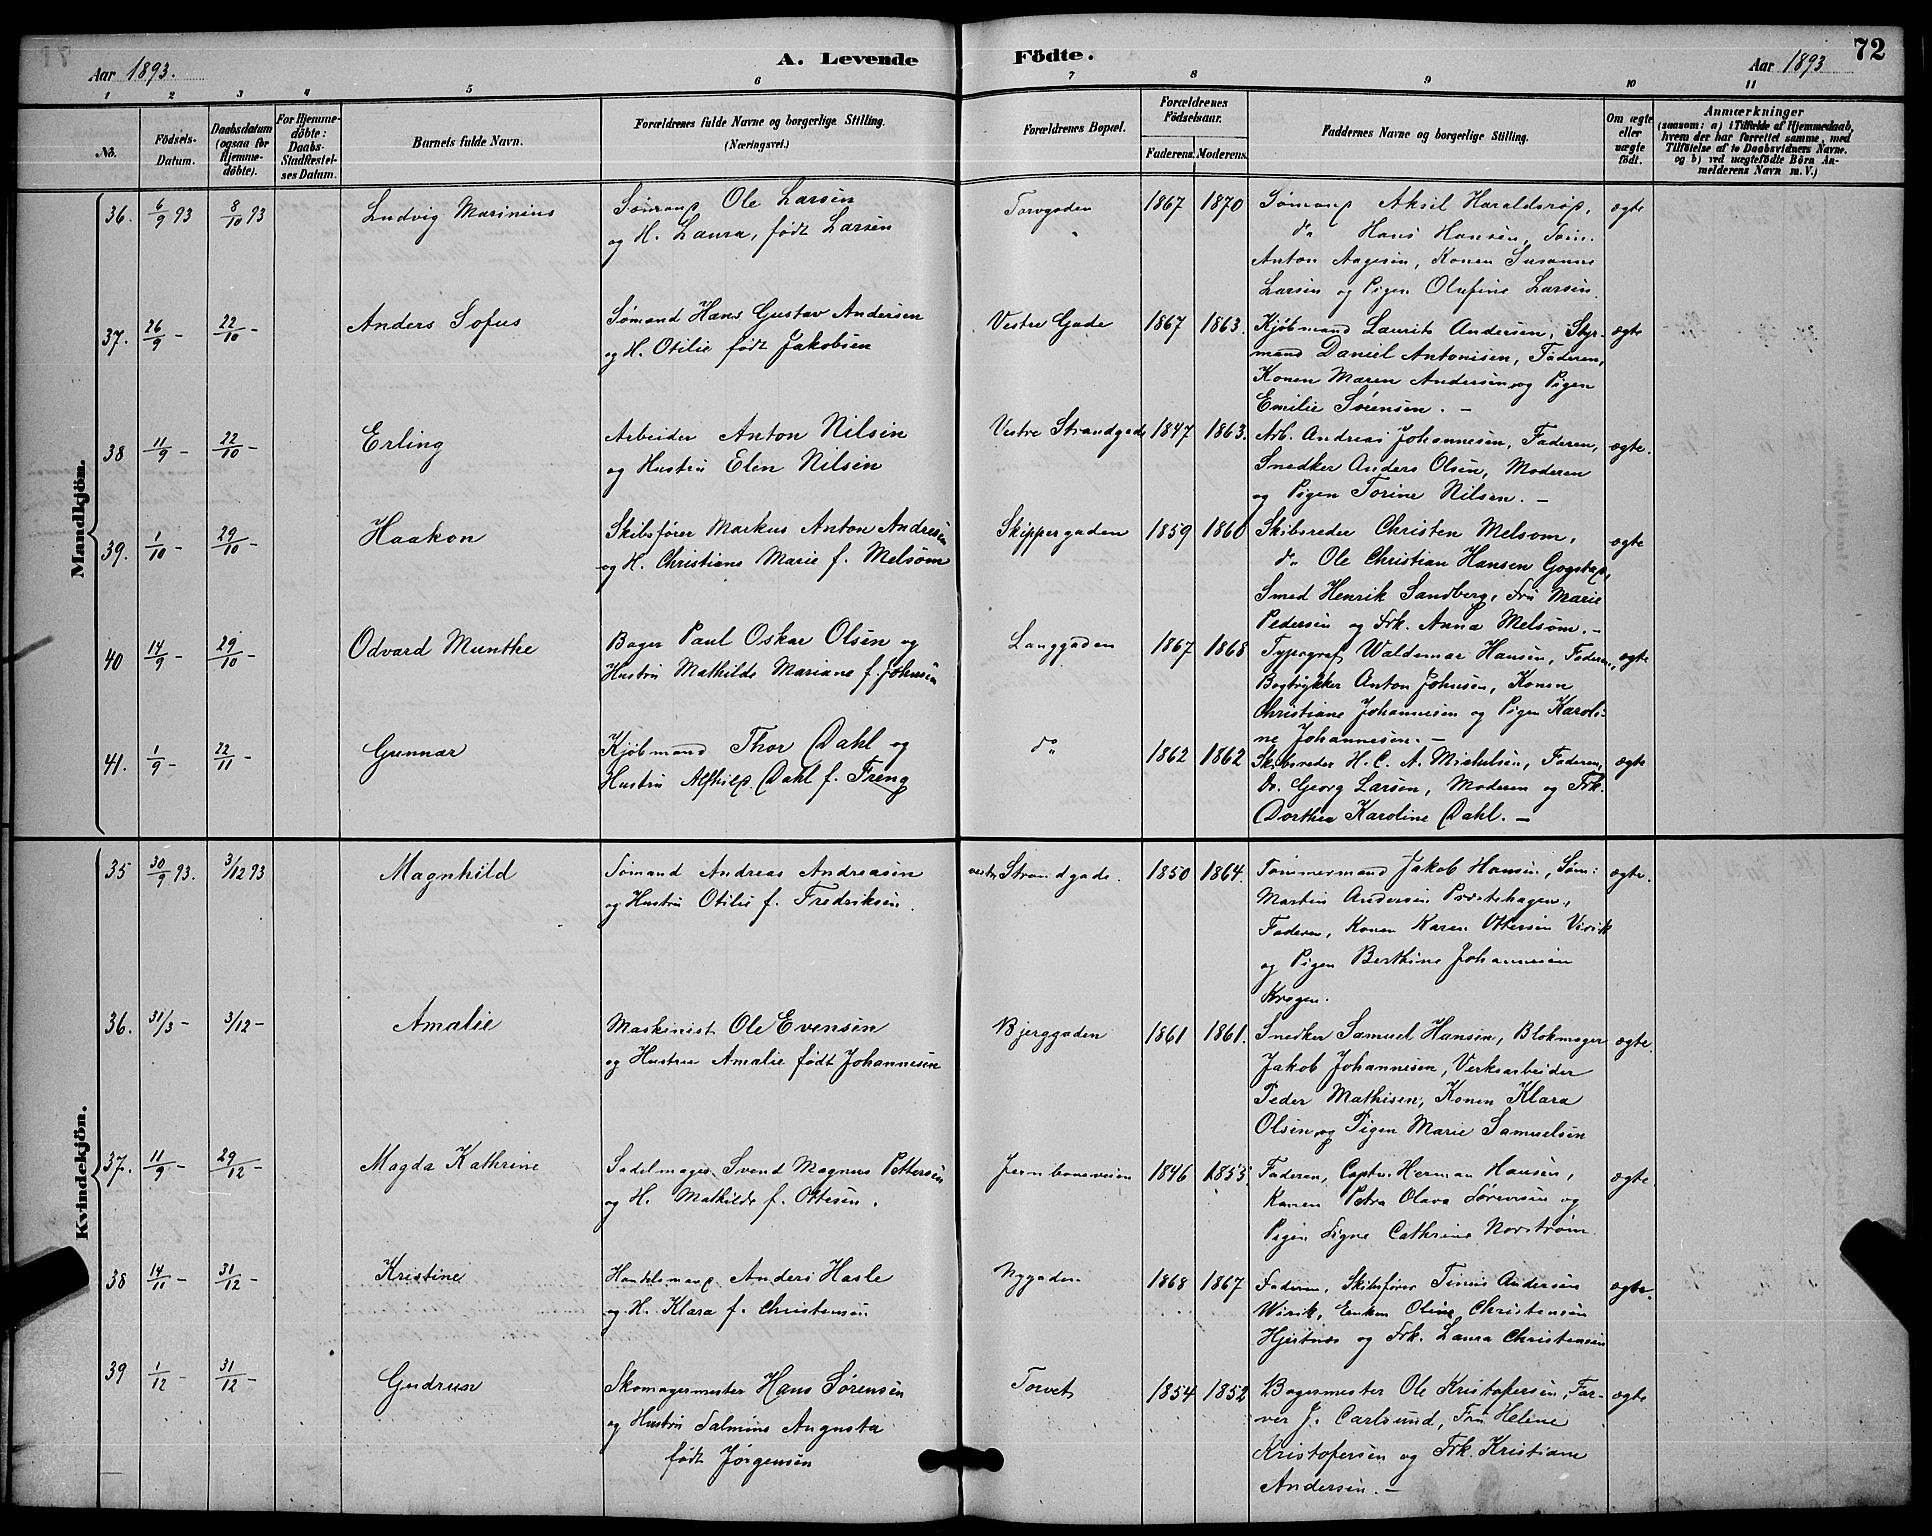 Aar 1893.
A. Levende Födte.
Aar 1893
72
1 2 3 4 5 6 7 8 9 10 11
No.
Födsels-Datum.
Daabsdatum (ogsaa for Hjemme-döbte).
For Hjemme-döbte: Daabs-Stadfæstelses Datum.
Barnets fulde Navn.
Forældrenes fulde Navne og borgerlige Stilling. (Næringsvei.)
Forældrenes Bopæl.
Forældrenes Födselsaar.
Faderens. Moderens.
Faddernes Navne og borgerlige Stilling.
Om ægte eller uægte födt.
Anmærkninger
(saasom: a) i Tilfælde af Hjemmedaab, hvem der har forrettet samme, med Tilföielse af to Daabsvidners Navne. og b) ved uægtefödte Börn Anmelderens Navn m. V.)
Mandkjön.
36. 6/9 93 8/10 93 Ludvig Marinius
Sømand Ole Larsen
og H. Laura, født Larsen
Torvgaden 1867 1870
Sømand Aksel Haraldsrøp,
do Hans Hansen, Søm.
Anton Aagesen, Konen Susanne
Larsen og Pigen Olufine Larsen.
ægte
37. 26/9 - 22/10 - Anders Sofus
Sømand Hans Gustav Andersen
og H. Otilie født Jakobsen
Vestre Gade 1867 1863.
Kjøbmand Laurits Andersen, Styr-
mand Daniel Antonisen, Faderen,
Konen Maren Andersen og Pigen
Emilie Sørensen. -
ægte
38 11/9 - 22/10 - Erling
Arbeider Anton Nilsen
og Hustru Elen Nilsen
Vestre Strandgade 1847 1863.
Arb. Andreas Johannesen, Faderen,
Snedker Anders Olsen, Moderen
og Pigen Torine Nilsen. -
ægte.
39. 1/10 - 29/10 - Haakon
Skibsfører Markus Anton Andresen
og H. Christiane Marie f. Melsom
Skippergaden 1859 1860
Skibsreder Christen Melsom,
do Ole Christian Hansen Gogstap,
Smed Henrik Sandberg, Fru Marie
Pedersen og Frk. Anna Melsom. -
ægte
40 14/9 - 29/10 - Odvard Munthe
Bager Paul Oskar Olsen og
Hustru Mathilde Mariane f. Johnsen
Langgaden 1867 1868
Typograf Waldemar Hansen, Faderen,
Bogtrykker Anton Johnsen, Konen
Christiane Johannesen og Pigen Karoli-
ne Johannesen. -
ægte
41. 1/9 - 22/11 - Gunnar
Kjøbmand Thor Dahl og
Hustru Alfhild Dahl f. Freng
do 1862 1862
Skibsreder H. C. A. Michelsen, Faderen,
Dr. Georg Larsen, Moderen og Frk.
Dorthea Karoline Dahl. -
ægte
Kvindekjön.
35 30/9 93. 3/12 93 Magnhild
Sømand Andreas Andreasen
og Hustru Otilie f. Fredriksen.
vestre Strandgade. 1850 1864.
Tømmermand Jakob Hansen, Søm:
Martin Andersen Prestehagen,
Faderen, Konen Karen Ottersen Virik
og Pigen Berthine Johannesen
Kragen.
ægte.
36. 31/3 - 3/12 - Amalie
Maskinist Ole Evensen
og Hustru Amalie født Johannesen
Bjerggaden 1861 1861.
Snedker Samuel Hansen, Blokmager
Jakob Johannesen, Verksarbeider
Peder Mathisen, Konen Klara
Olsen og Pigen Marie Samuelsen
ægte.
37. 11/9 - 29/12 - Magda Kathrine
Sadelmager Svend Magnus Pettersen
og H. Mathilde f. Ottesen.
Jernbaneveien 1846 1855.
Faderen, Captn. Herman Hansen,
Konen Petra Olava Sørensen og
Pigen Signe Cathrine Norstrøm
ægte.
38 14/11 - 31/12 - Kristine
Handelsmand Anders Hasle
og H. Klara f. Christensen
Nygaden 1868 1867
Faderen, Skibsfører Tinius Andersen
Wirik, Enken Oline Christensen
Hjertnæs og Frk. Laura Christensen
ægte.
39 1/12 - 31/12 - Gudrun
Skomagermester Hans Sørensen
og Hustru Salmine Augusta
født Jørgensen
Torvet 1854 1852
Bagermester Ole Kristofersen, Far-
ver J. Carlsund, Fru Helene
Kristofersen og Frk. Kristiane
Andersen. -
ægte